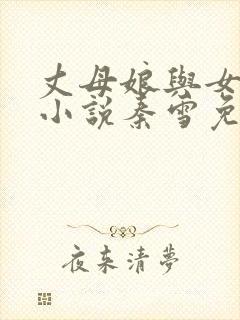 丈母娘與女
小說秦雪免
夜來清夢